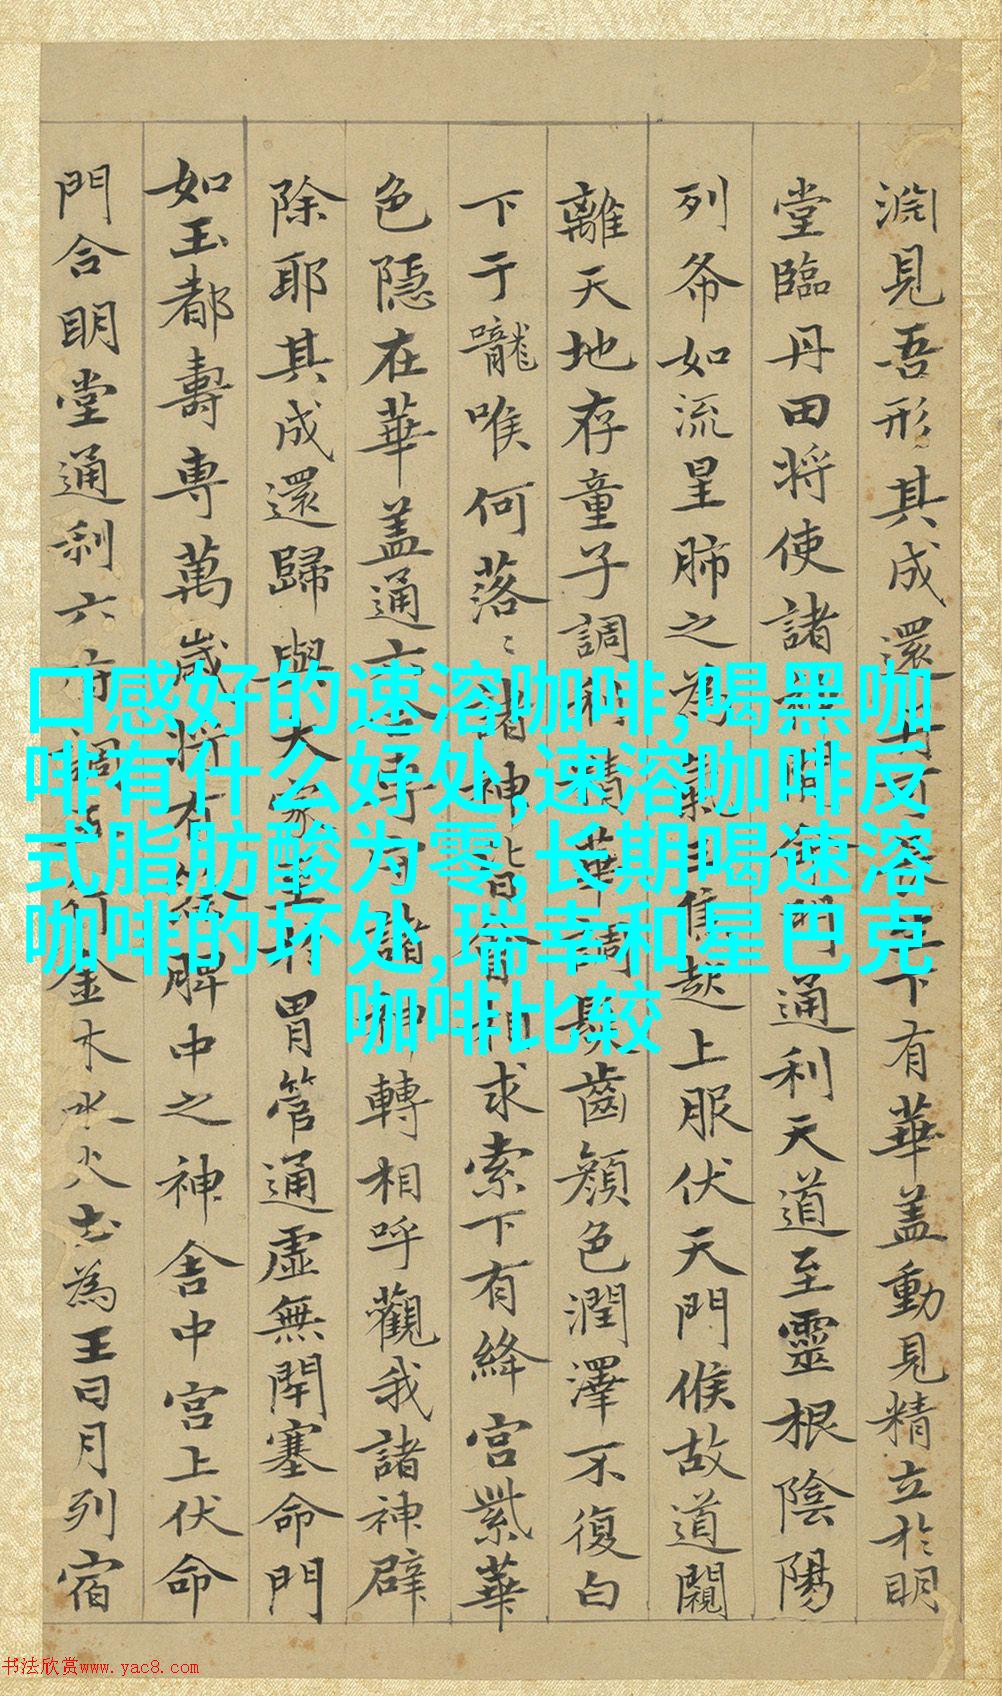 淵見吾形其成還下有華盖動見精立於明
堂臨丹田将使諸開命門通利天道至靈根陰陽
列布如流星肺之為氣三焦起上服伏天門候故道闚
離天地存童子調利精華調髮齒顏色潤澤不復白
下于嚨喉何落〻諸神皆會相求索下有絳宮紫華
色隱在華盖通六専守諸神轉相呼觀我諸神辟
除耶其成還歸與大家至於胃管通虛無閉塞命門
如玉都壽専萬歲将有餘脾中之神舎中宮上伏命
門合明堂通利六府調五行金木水火土為王日月列宿
口感好的速溶咖啡,喝黑咖
啡有什么好处,速溶咖啡反
式脂肪酸为零,长期喝速溶
咖啡的坏处,瑞幸和星巴克
咖啡比较
书法欣赏www.yac8.com